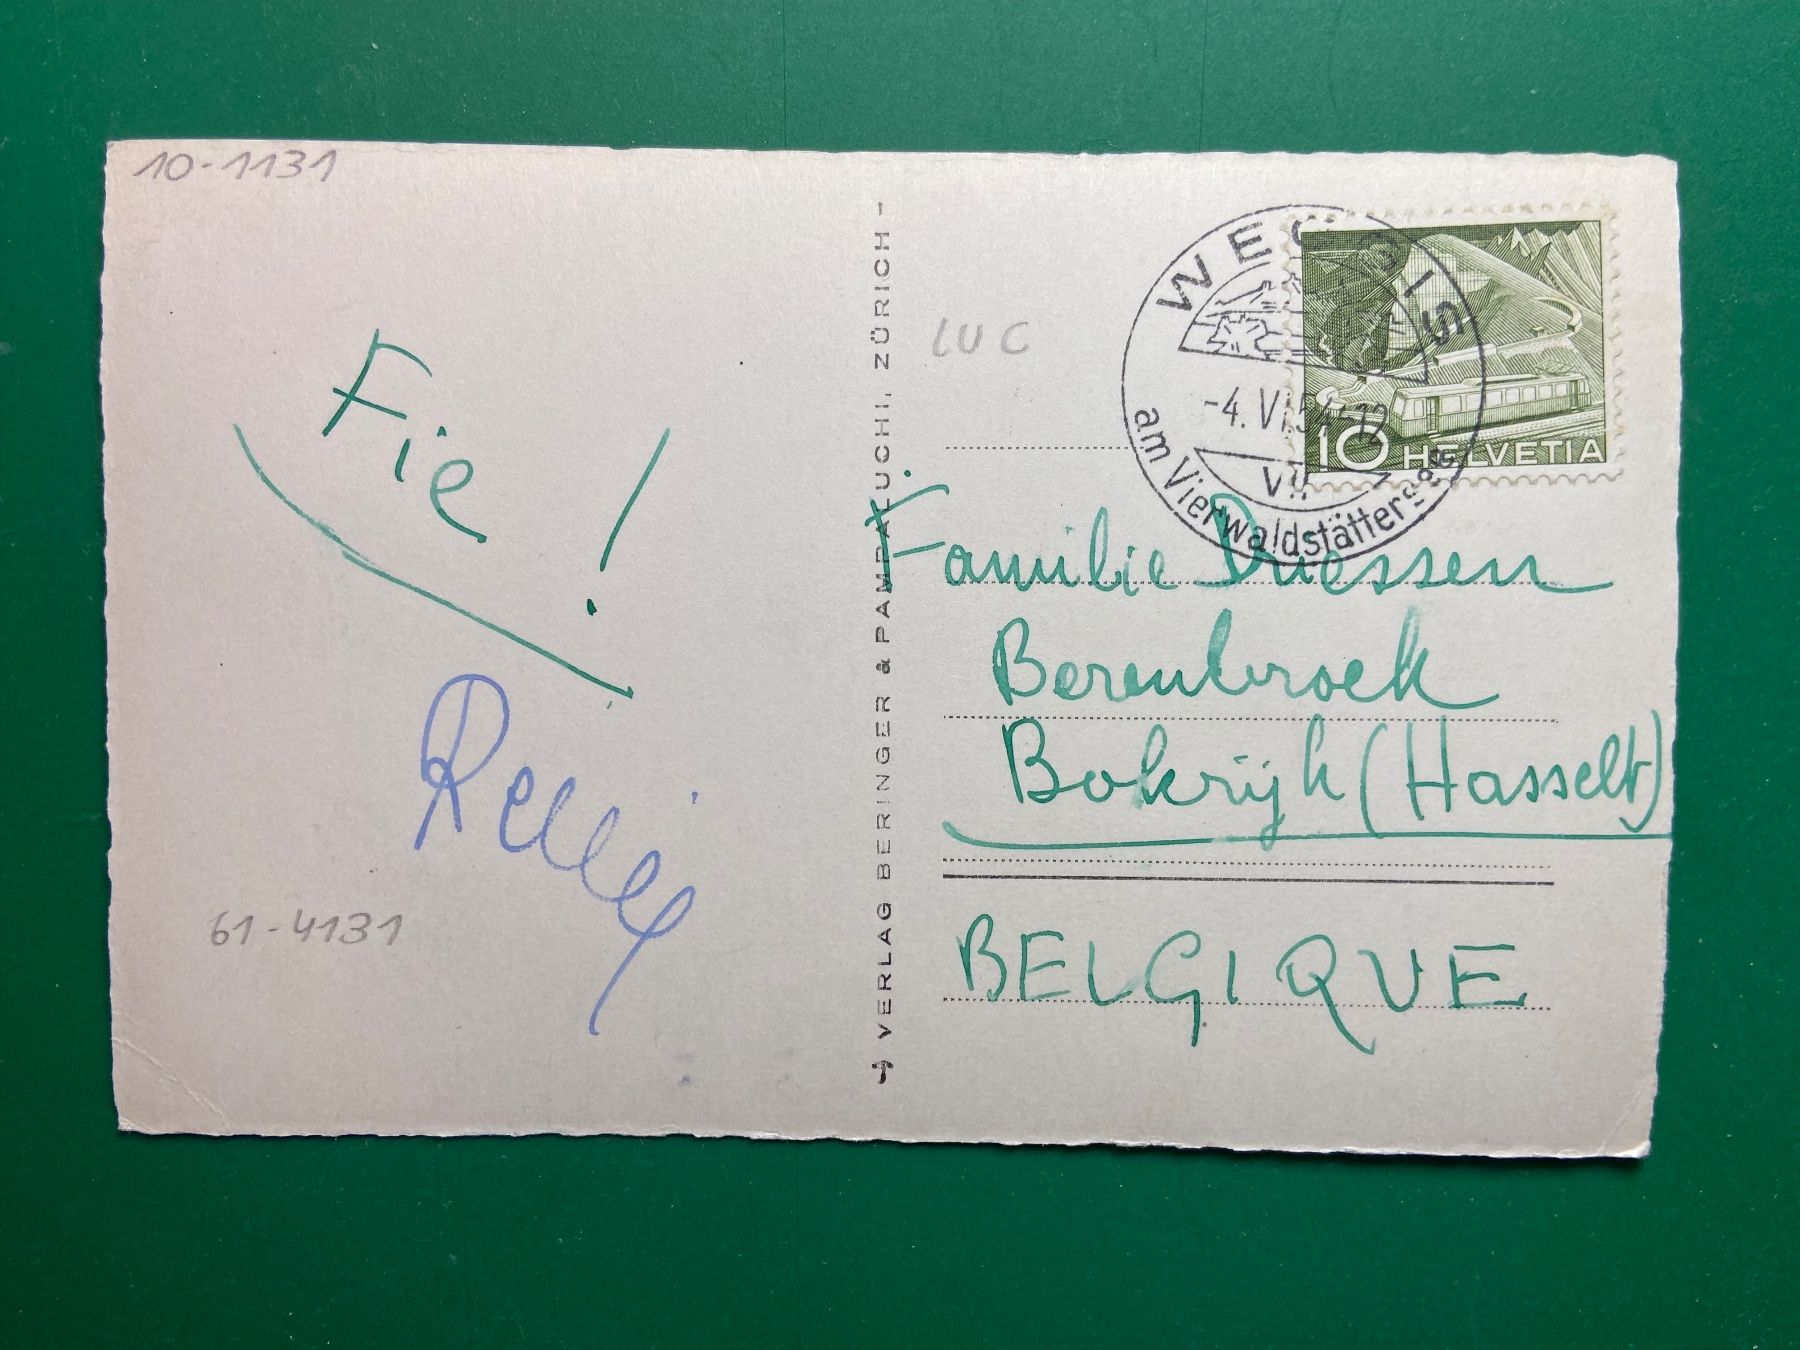 10-1131
Fie!
61-4131
VERLAG BERINGER & PAMPALUCHI, ZÜRICH -
LUC
WEGGIS
-4. VI. 54-12
VII
am Vierwaldstättersee
10 HELVETIA
Familie Driessen
Berenbroek
Bokrijk (Hasselt)
BELGIQUE